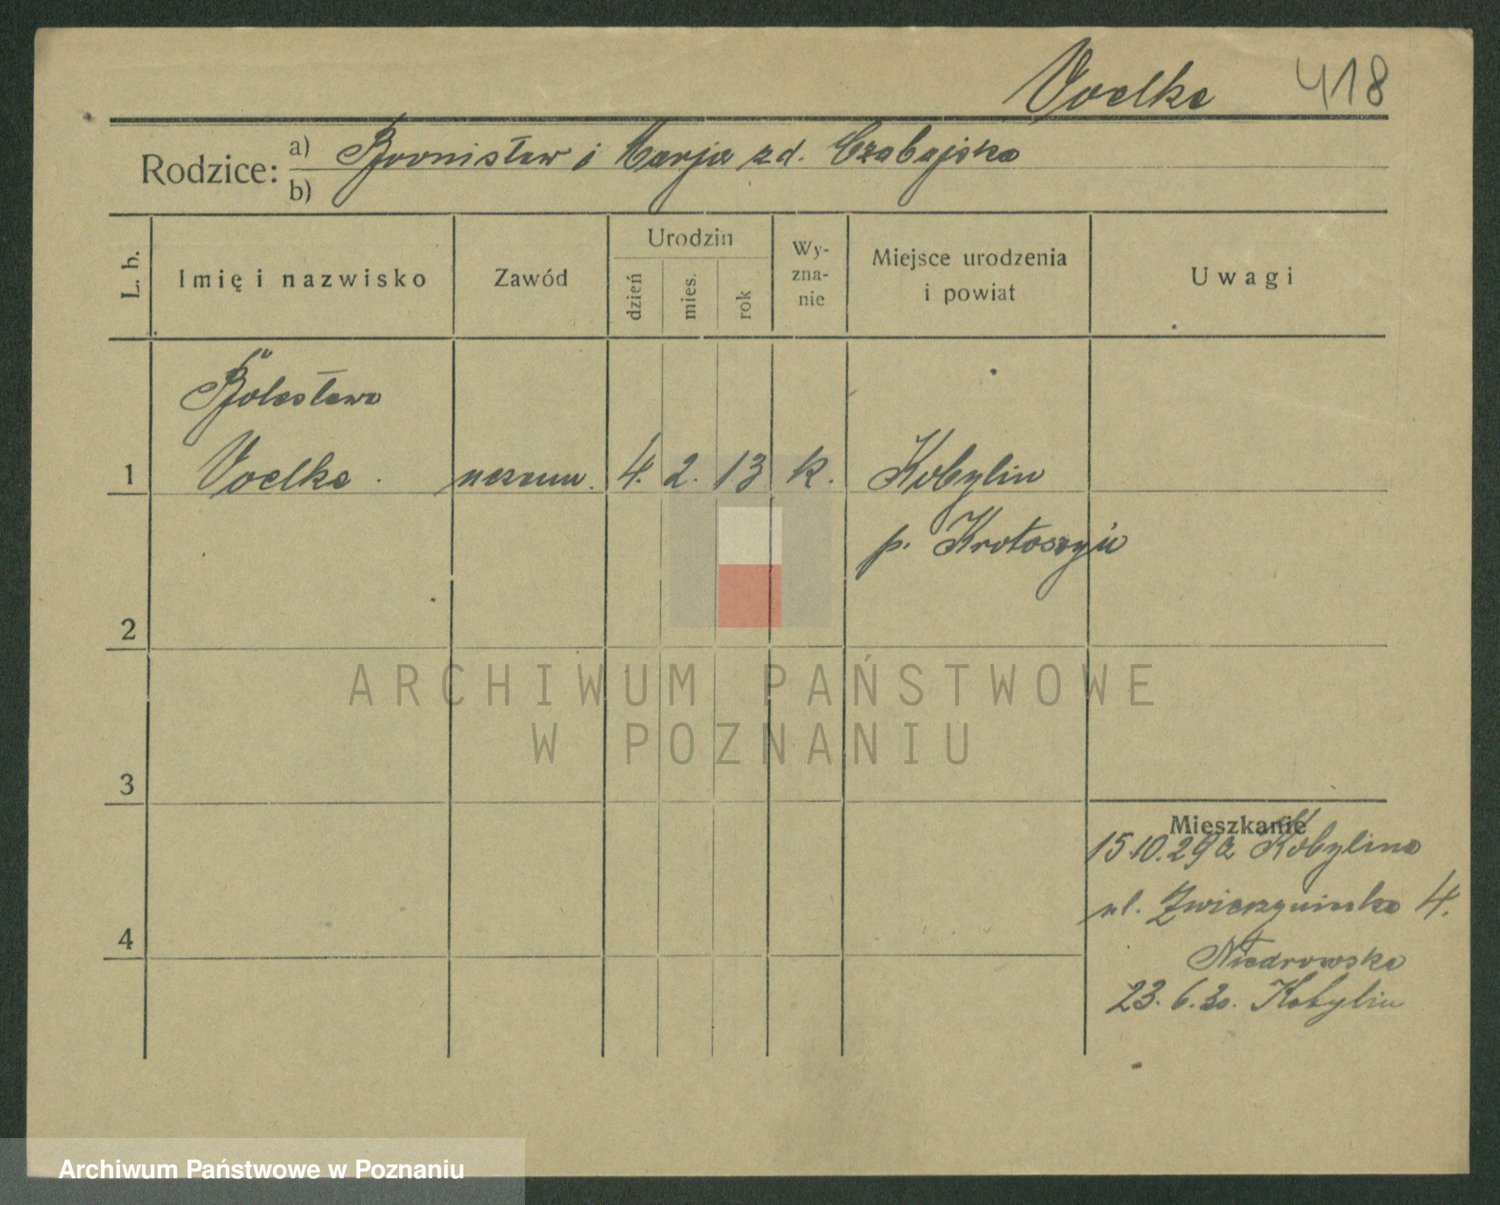 Voelke 418
Rodzice: a) Bronisław i Marja zd. Czabajska
b)
L. b.
Imię i nazwisko
Zawód
Urodzin
dzień
mies.
rok
Wy-
zna-
nie
Miejsce urodzenia
i powiat
Uwagi
Bolesława
1 Voelke. 4. 2. 13 k. Kobylin
p. Krotoszyn
2
3
4
Mieszkanie
15.10.29 z Kobylina
ul. Zwierzyniecka 4.
23.6.30. Kobylin
ARCHIWUM PAŃSTWOWE
W POZNANIU
Archiwum Państwowe w Poznaniu